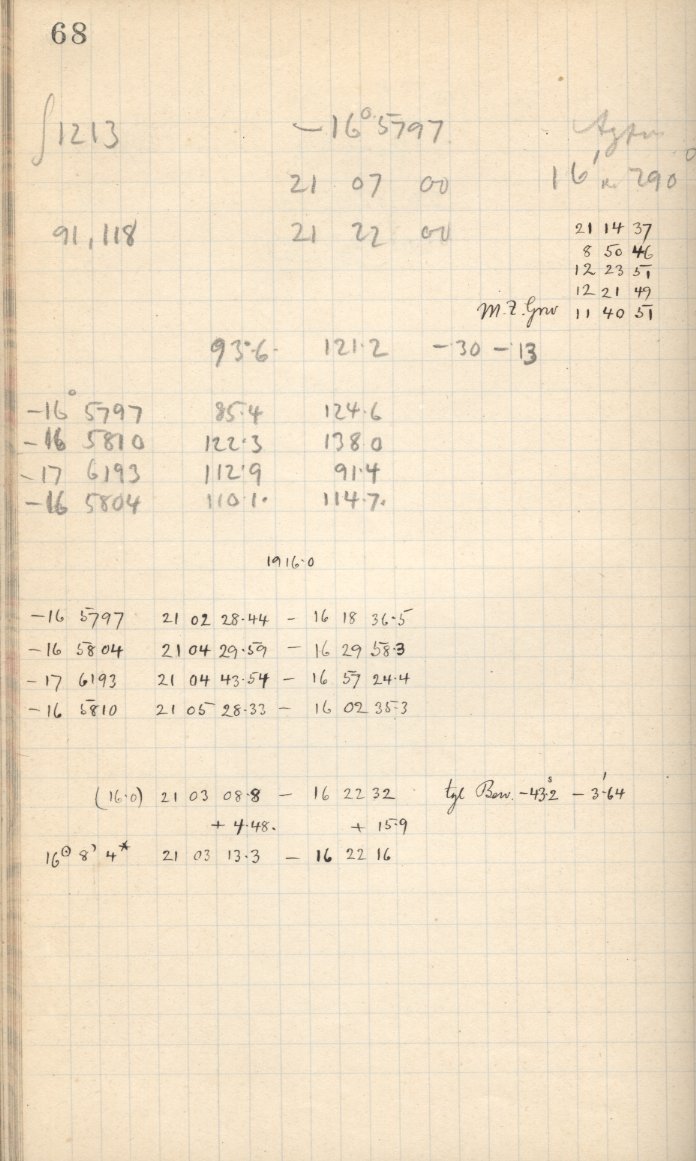 68
∫1213 -16° 5797
21 07 00 16' 290°
91,118 21 22 00 21 14 37
8 50 46
12 23 51
12 21 49
M.Z. Grw 11 40 51
93·6· 121·2 -·30 -·13
-16° 5797 85·4 124·6
-16 5810 122·3 138·0
-17 6193 112·9 91·4
-16 5804 110·1· 114·7·
1916·0
-16 5797 21 02 28·44 - 16 18 36·5
-16 5804 21 04 29·59 - 16 29 58·3
-17 6193 21 04 43·54 - 16 57 24·4
-16 5810 21 05 28·33 - 16 02 35·3
(16·0) 21 03 08·8 - 16 22 32 tgl Bew. -43ˢ·2 - 3'·64
+ 4·48· + 15·9
16° 8' 4* 21 03 13·3 - 16 22 16